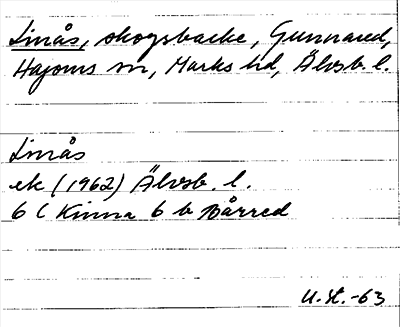 Linås, skogsbacke, Gunnared,
Hajoms sn, Marks hd, Älvsb. l.
Linås
ek (1962) Älvsb. l.
6 C Kinna 6 b Bårred
U.St.-63